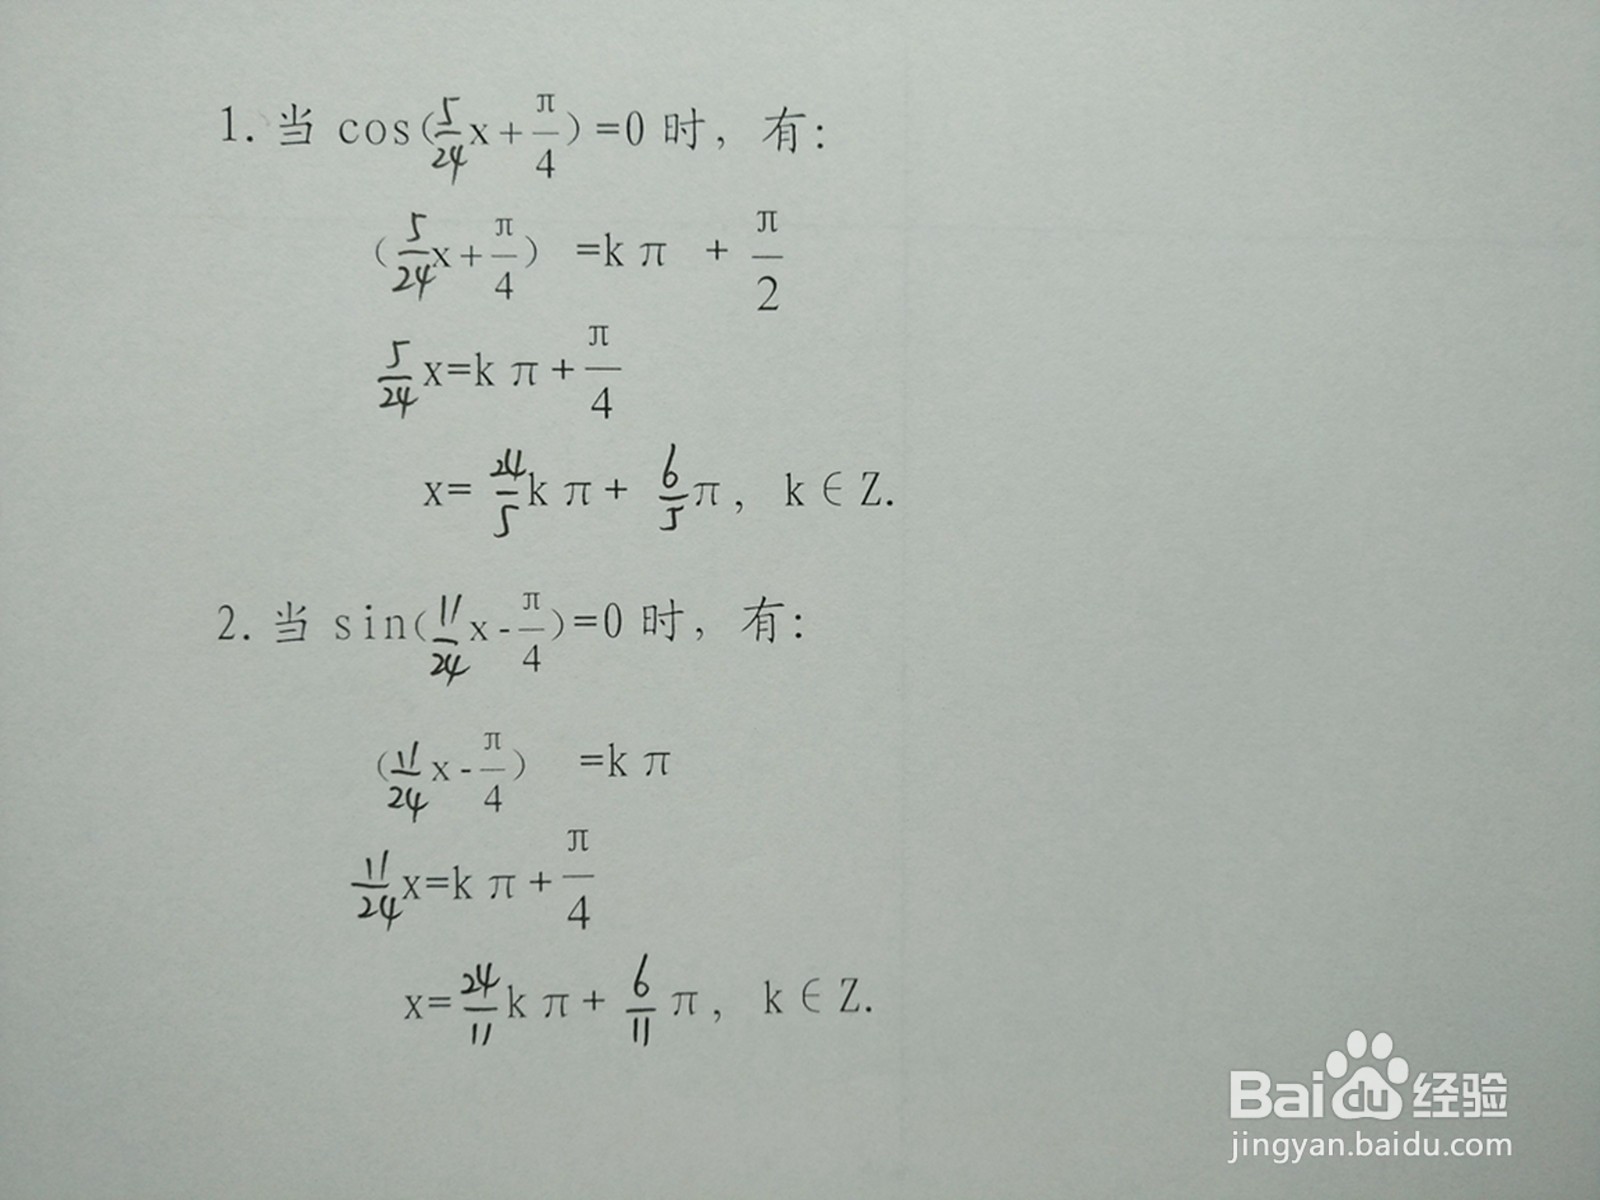 1. 当 cos(5/24x+π/4)=0 时，有:
(5/24x+π/4) =kπ + π/2
5/24x=kπ+π/4
x=24/5kπ+ 6/5π, k∈Z.
2. 当 sin(11/24x-π/4)=0 时，有:
(11/24x-π/4) =kπ
11/24x=kπ+π/4
x=24/11kπ+ 6/11π, k∈Z.
Baidu经验
jingyan.baidu.com